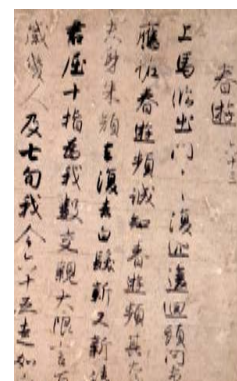 春遊
上馬臨出門ヽヽ復逡巡迴頭問
應怪春遊頻誠知春遊頻其奈
大身朱顏去復去白髮新又新請
君屈十指為我數交親大限
歲幾人及七旬我今六十五走如